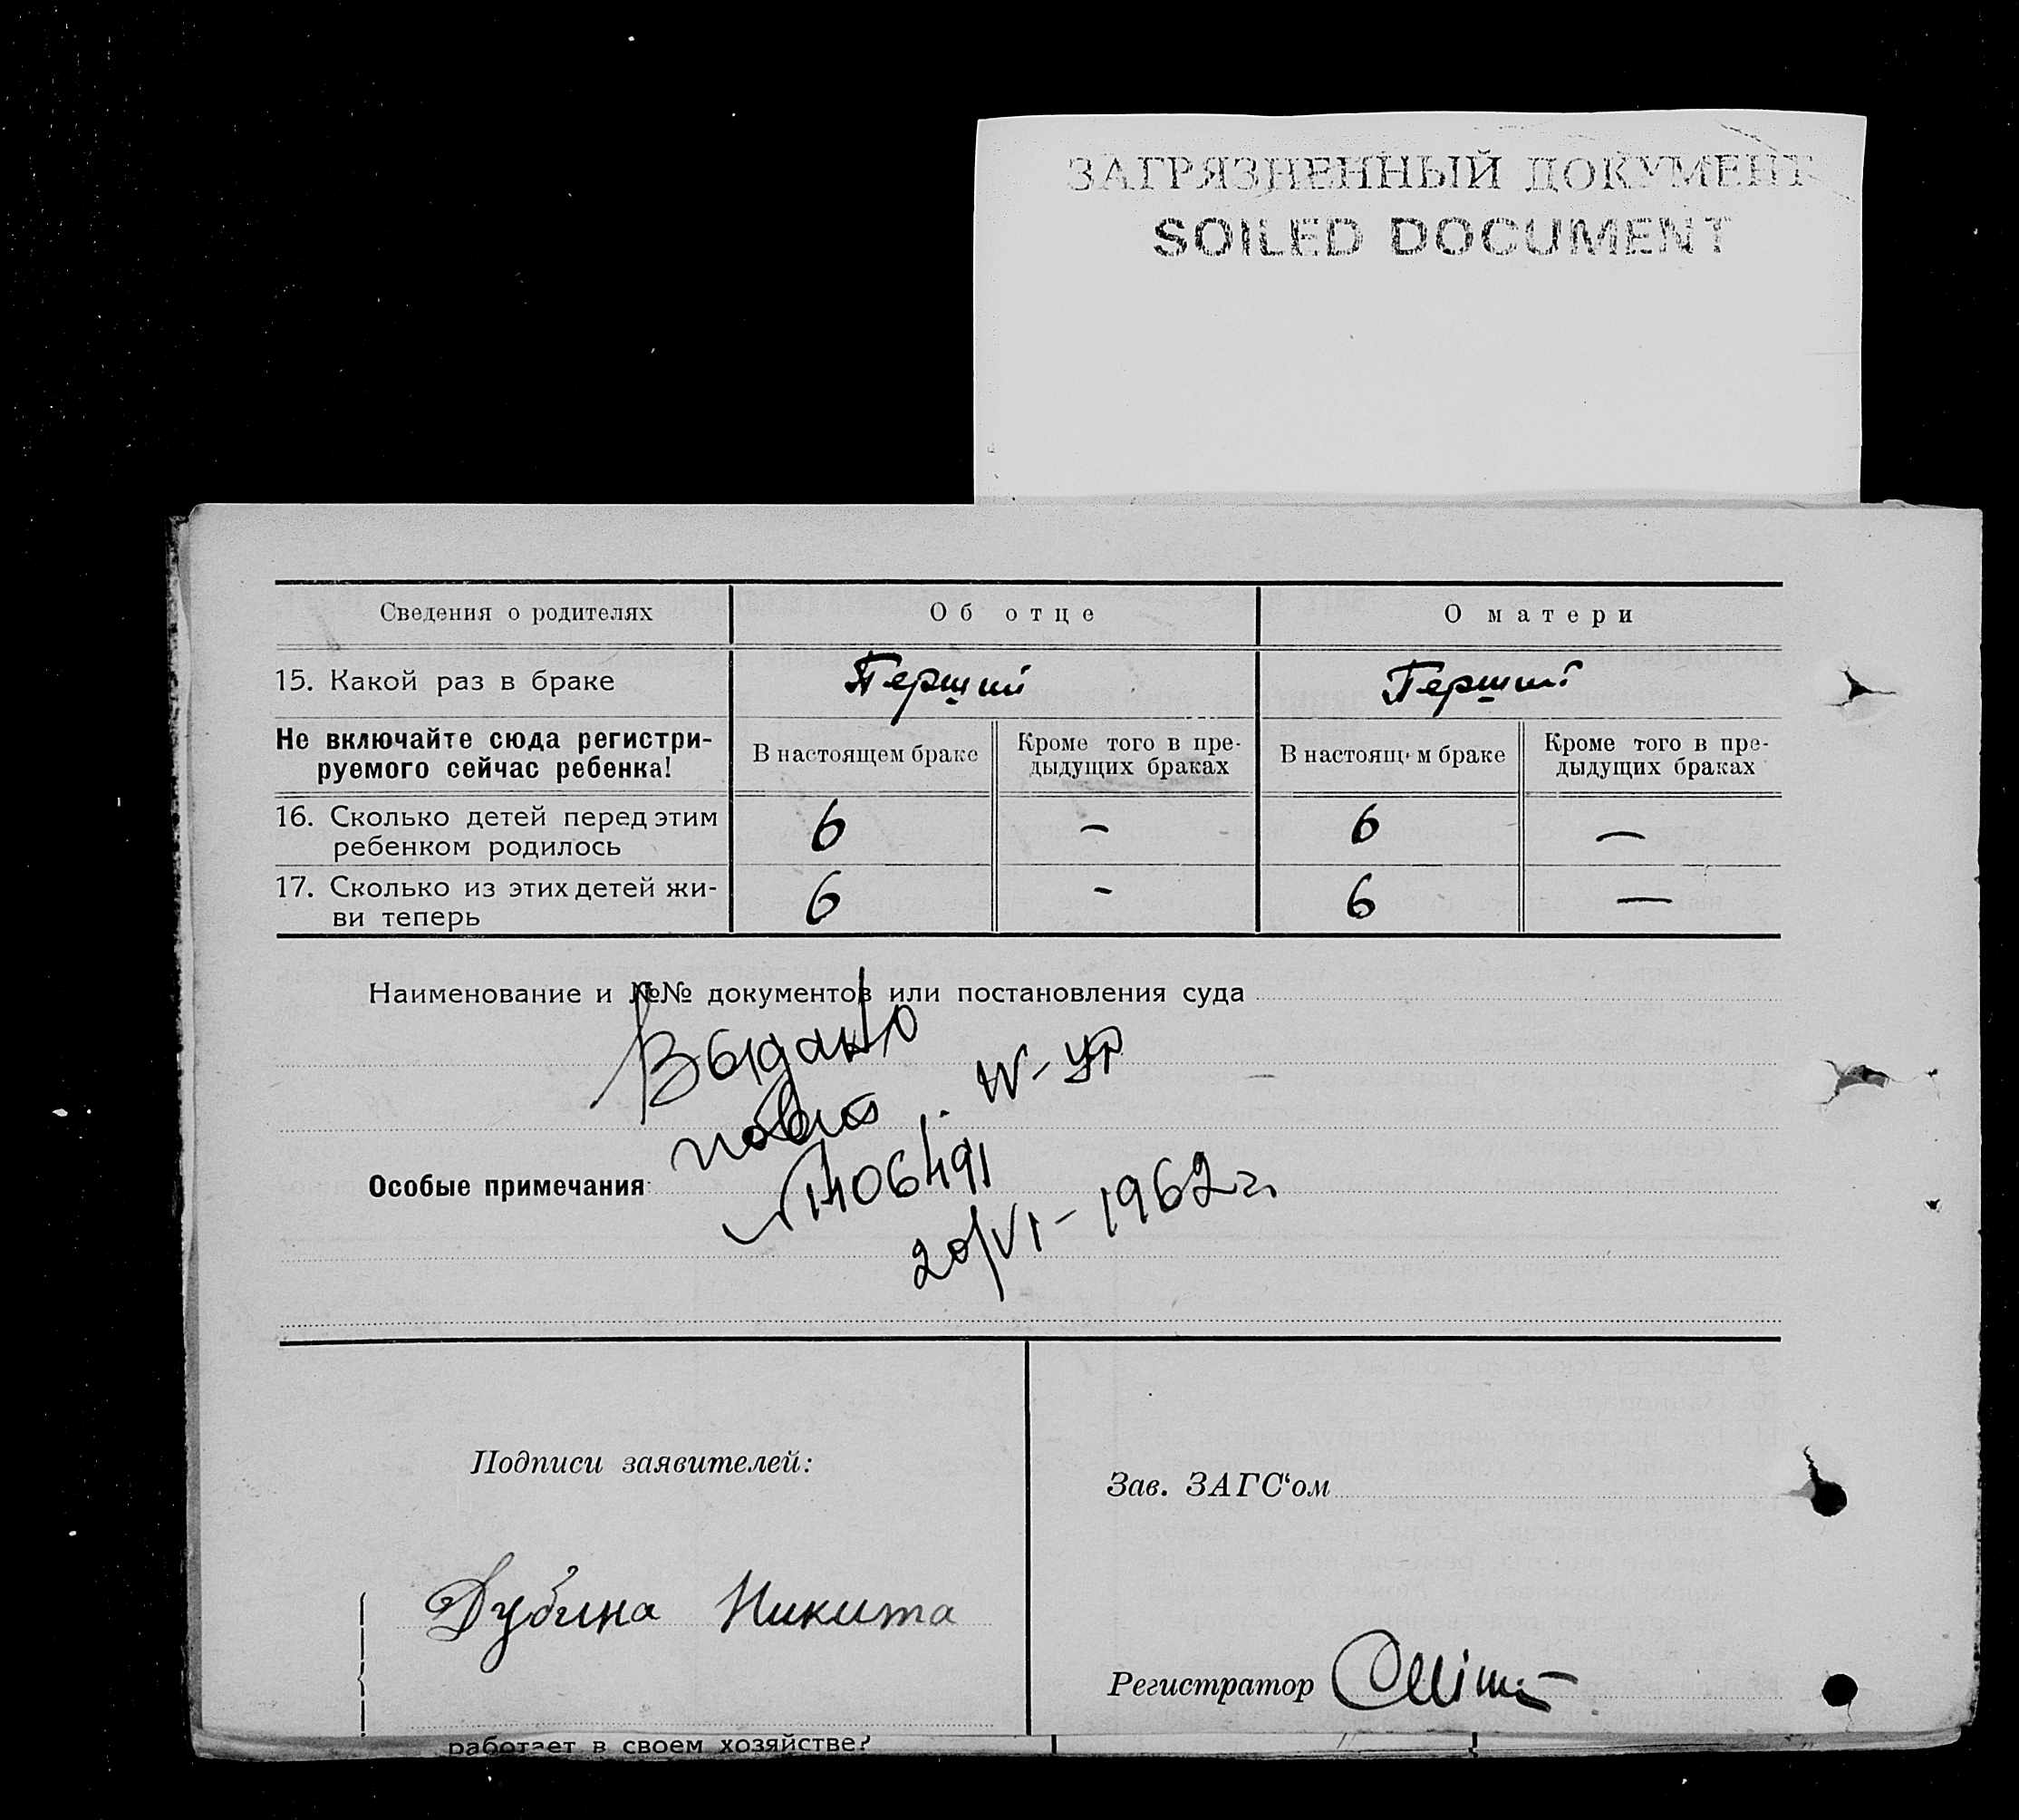 ЗАГРЯЗНЕННЫЙ ДОКУМЕНТ
SOILED DOCUMENT
Сведения о родителях Об отце О матери
15. Какой раз в браке Перший Перший
Не включайте сюда регистри-
руемого сейчас ребенка!
В настоящем браке
Кроме того в пре-
дыдущих браках
В настоящ м браке
Кроме того в пре-
дыдущих браках
16. Сколько детей перед этим
ребенком родилось
6 – 6 –
17. Сколько из этих детей жи-
ви теперь
6 - 6 –
Наименование и №№ документов или постановления суда
Выдано
Особые примечания
20/VI – 1962 г.
Подписи заявителей:
Зав. ЗАГС‘ом
Дубина Никита
Регистратор
работает в своем хозяйстве?